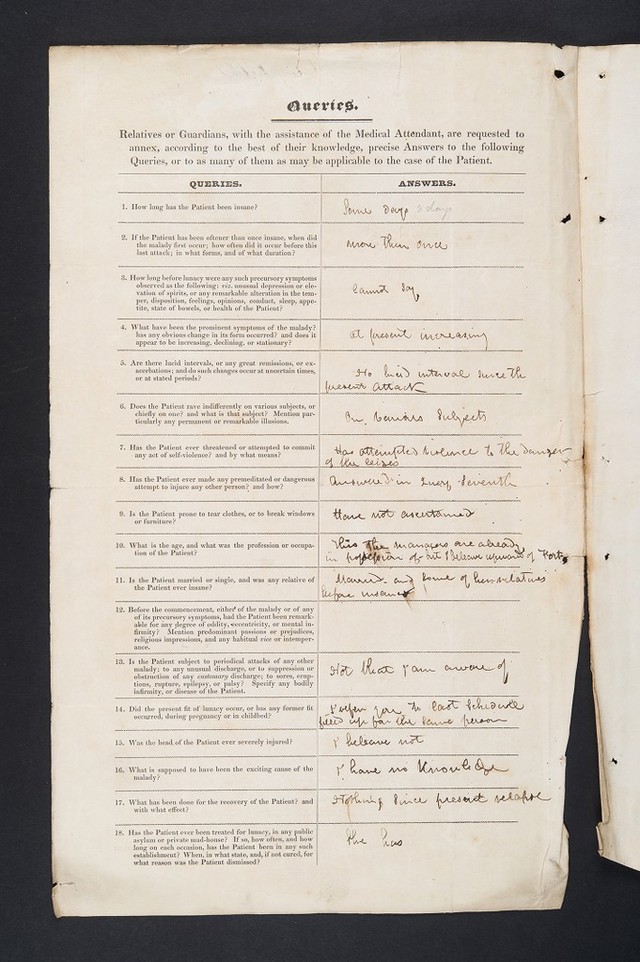 Queries.
Relatives or Guardians, with the assistance of the Medical Attendant, are requested to
annex, according to the best of their knowledge, precise Answers to the following
Queries, or to as many of them as may be applicable to the case of the Patient.
QUERIES.
ANSWERS.
1. How long has the Patient been insane?
Some days 2 days
2. If the Patient has been oftener than once insane, when did
the malady first occur; how often did it occur before this
last attack; in what forms, and of what duration?
more then once
3. How long before lunacy were any such precursory symptoms
observed as the following: viz. unusual depression or ele-
vation of spirits, or any remarkable alteration in the tem-
per, disposition, feelings, opinions, conduct, sleep, appe-
tite, state of bowels, or health of the Patient?
Cannot Say
4. What have been the prominent symptoms of the malady?
has any obvious change in its form occurred? and does it
appear to be increasing, declining, or stationary?
at present increasing
5. Are there lucid intervals, or any great remissions, or ex-
acerbations; and do such changes occur at uncertain times,
or at stated periods?
No lucid interval since the
present attack
6. Does the Patient rave indifferently on various subjects, or
chiefly on one? and what is that subject? Mention par-
ticularly any permanent or remarkable illusions.
On various Subjects
7. Has the Patient ever threatened or attempted to commit
any act of self-violence? and by what means?
Has attempted violence to the danger
of the leiges
8. Has the Patient ever made any premeditated or dangerous
attempt to injure any other person? and how?
Answered in Query Seventh
9. Is the Patient prone to tear clothes, or to break windows
or furniture?
Have not ascertained
10. What is the age, and what was the profession or occupa-
tion of the Patient?
This the managers are already
in possession of but I beleave upwards of Forty
11. Is the Patient married or single, and was any relative of
the Patient ever insane?
Married and some of her relatives
before insane
12. Before the commencement, either of the malady or of any
of its precursory symptoms, had the Patient been remark-
able for any degree of oddity, eccentricity, or mental in-
firmity? Mention predominant passions or prejudices,
religious impressions, and any habitual vice or intemper-
ance.
13. Is the Patient subject to periodical attacks of any other
malady; to any unusual discharge, or to suppression or
obstruction of any customary discharge; to sores, erup-
tions, rupture, epilepsy, or palsy? Specify any bodily
infirmity, or disease of the Patient.
Not that I am aware of
14. Did the present fit of lunacy occur, or has any former fit
occurred, during pregnancy or in childbed?
I refer you to last Schedule
filled up for the same person
15. Was the head of the Patient ever severely injured?
I beleave not
16. What is supposed to have been the exciting cause of the
malady?
I have no Knowledge
17. What has been done for the recovery of the Patient? and
with what effect?
Nothing Since present relapse
18. Has the Patient ever been treated for lunacy, in any public
asylum or private mad-house? If so, how often, and how
long on each occasion, has the Patient been in any such
establishment? When, in what state, and, if not cured, for
what reason was the Patient dismissed?
She has